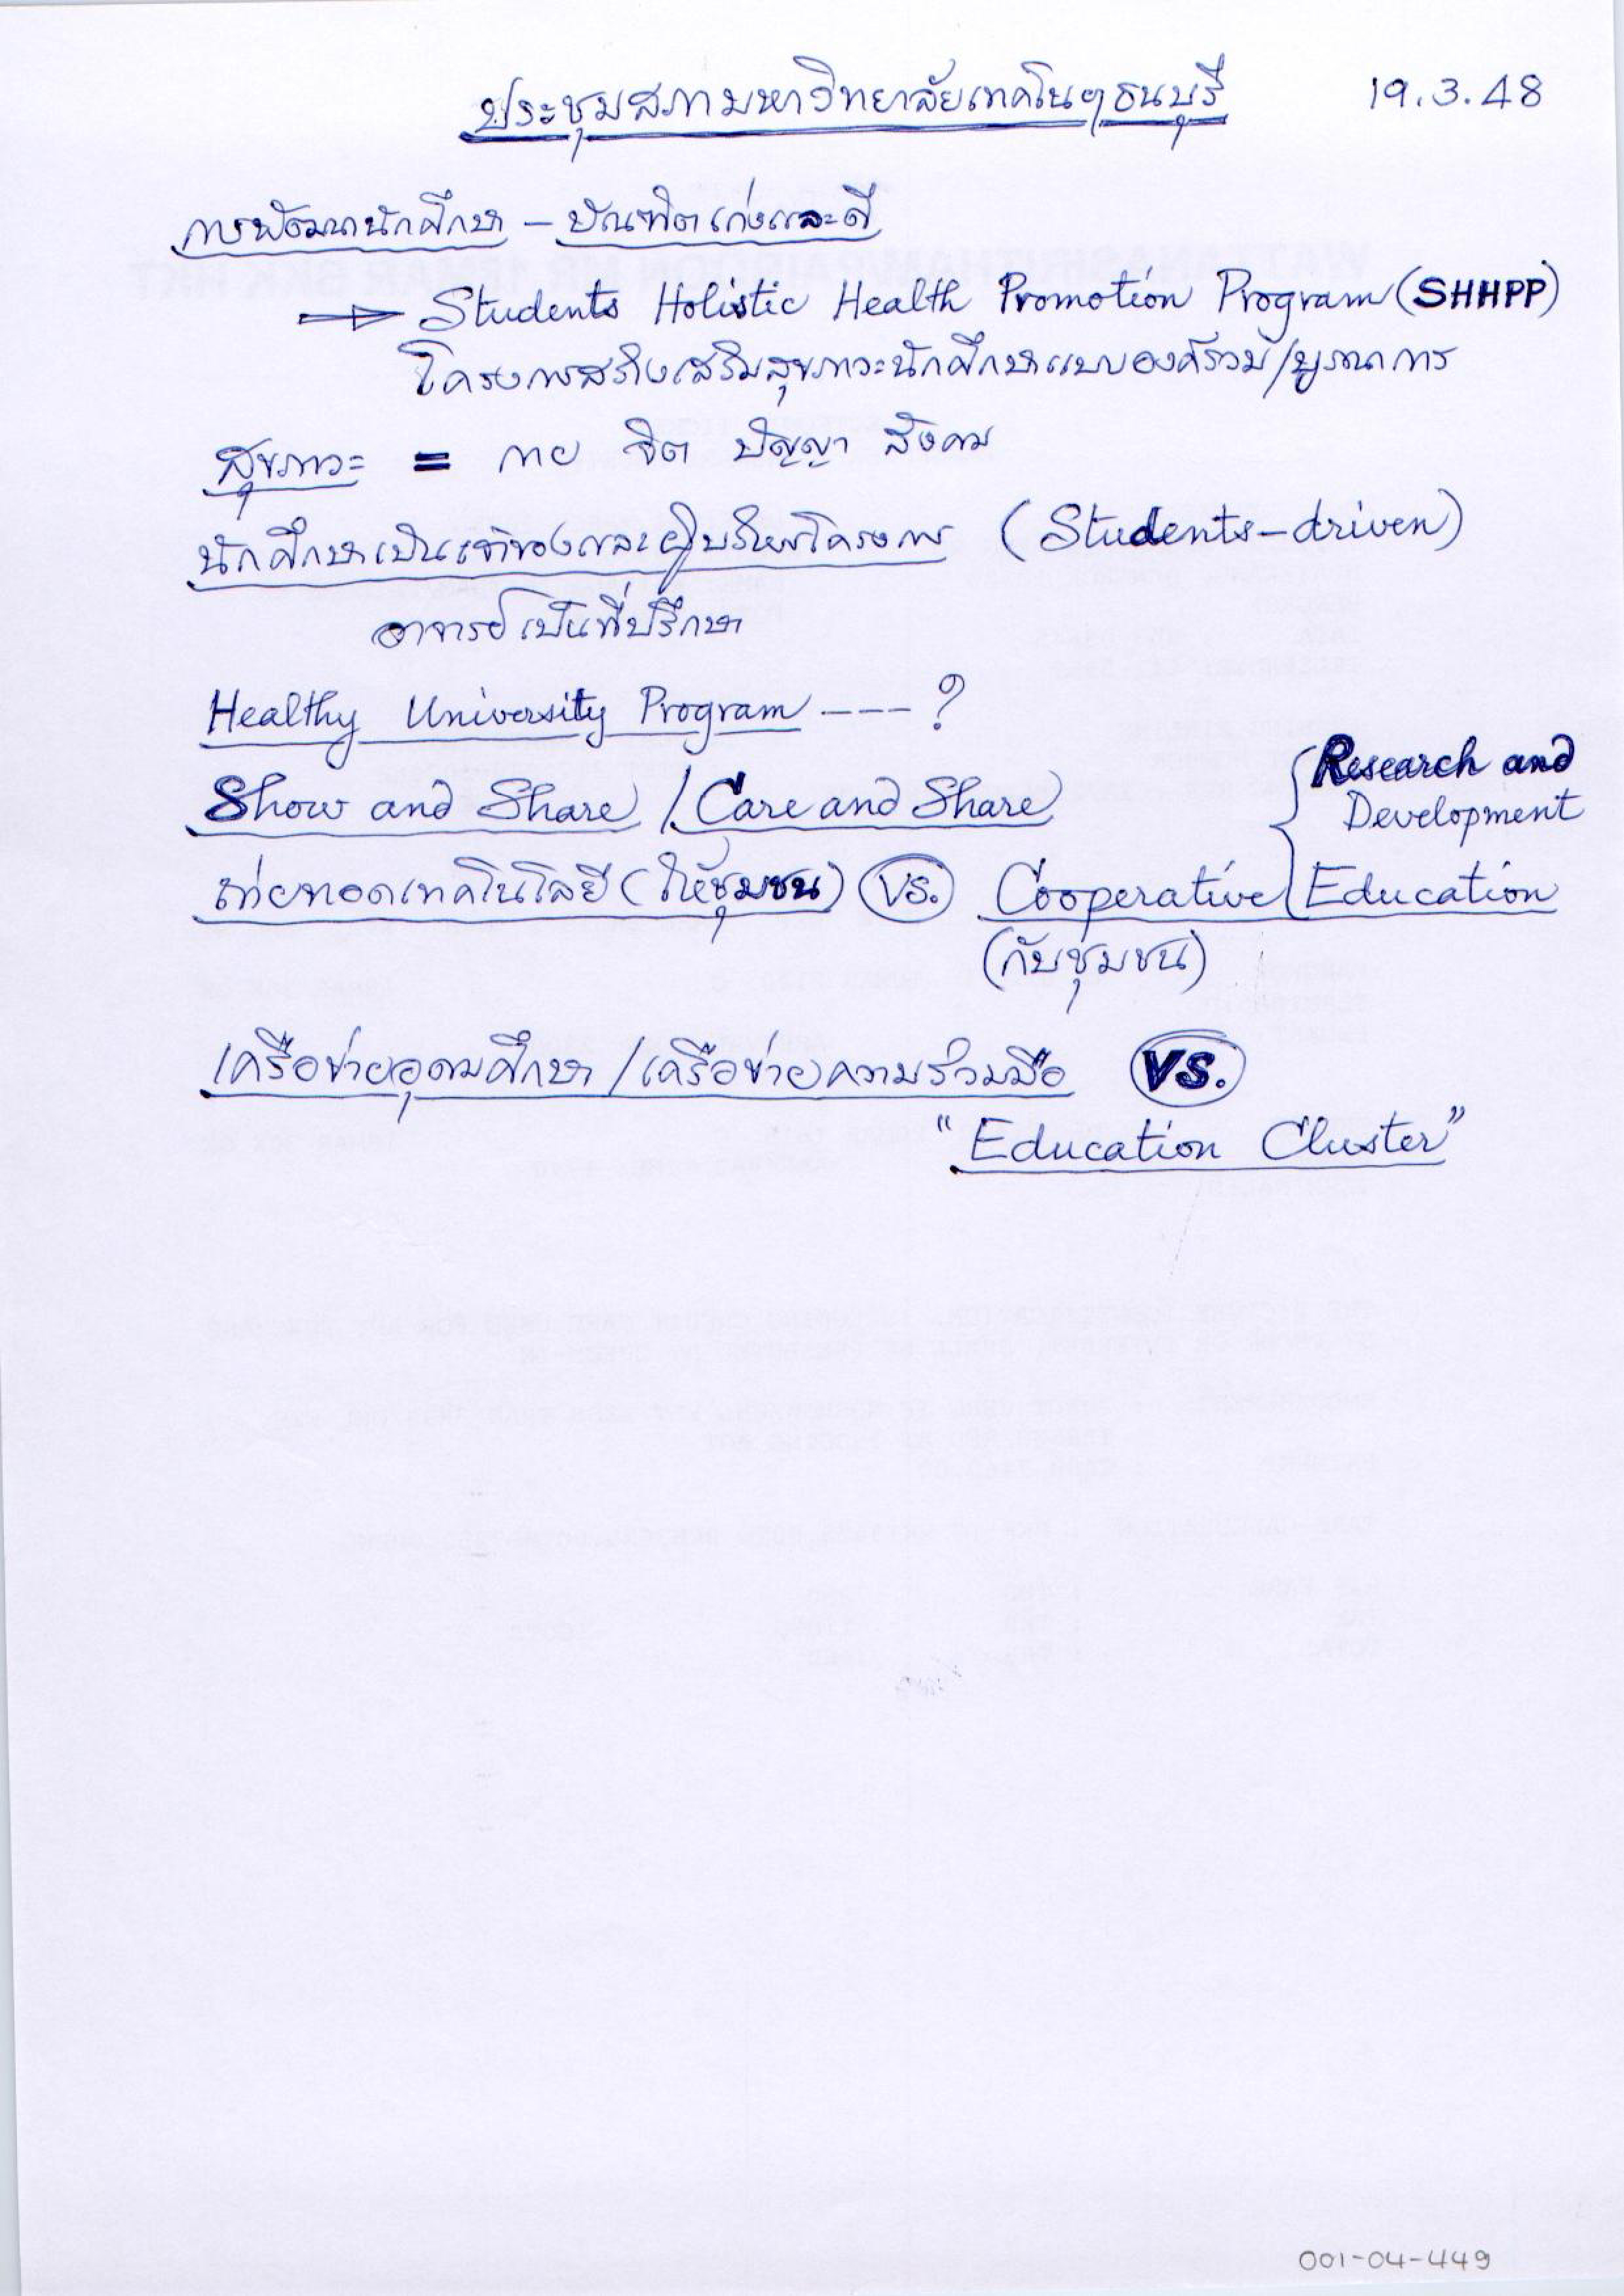 ประชุมสภามหาวิทยาลัยเทคโนฯธนบุรี 19.3.48
การพัฒนานักศึกษา – บัณฑิตเก่งและดี
⇒ Students Holistic Health Promotion Program (SHHPP)
โครงการสร้างเสริมสุขภาวะนักศึกษาแบบองค์รวม/บูรณาการ
สุขภาวะ = กาย จิต ปัญญา สังคม
นักศึกษาเป็นเจ้าของและผู้บริหารโครงการ (Students-driven)
อาจารย์เป็นที่ปรึกษา
Healthy University Program ---?
Show and Share / Care and Share { Research and
Development
ถ่ายทอดเทคโนโลยี (ให้ชุมชน) VS. Cooperative Education
(กับชุมชน)
เครือข่ายอุดมศึกษา / เครือข่ายความร่วมมือ VS.
"Education Cluster"
001-04-449